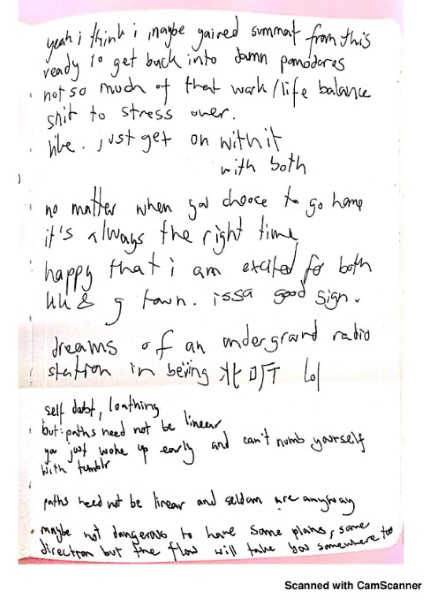 yeah i think i maybe gained summat from this
ready to get back into damn pomodores
not so much of that work/life balance
shit to stress over.
like. just get on with it
with both
no matter when you choose to go home
it's always the right time
happy that i am excited for both
uk & g town. issa good sign.
dreams of an undergrand radio
station in beijing 北
self dabt, loathing
but paths need not be linear
you just woke up early and can't numb yourself
with tumblr
paths need not be linear and seldom are anyway
maybe not dangerous to have some plans, some
direction but the flow will take you somewhere too
Scanned with CamScanner